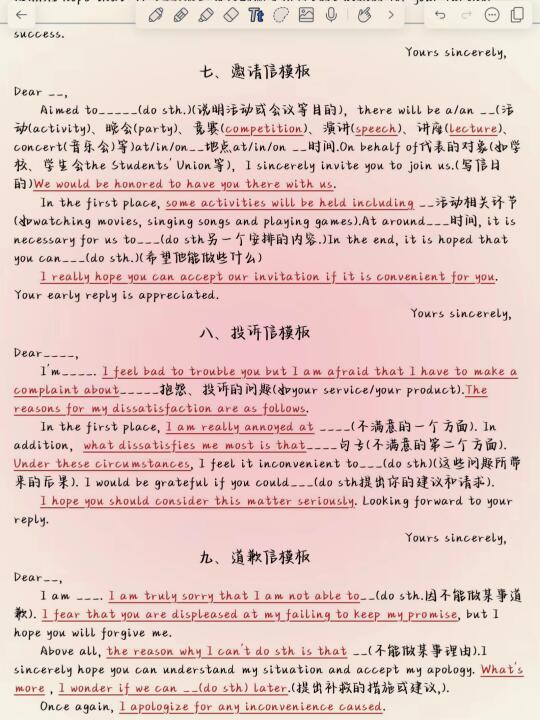 success.
Yours sincerely,
七、邀请信模板
Dear __,
Aimed to_____(do sth.)(说明活动或会议等目的)，there will be a/an __(活
动(activity)、晚会(party)、竞赛(competition)、演讲(speech)、讲座(lecture)、
concert(音乐会)等)at/in/on__地点at/in/on __时间.On behalf of代表的对象(如学
校、学生会the Students' Union等)，I sincerely invite you to join us.(写信目
的)We would be honored to have you there with us.
In the first place, some activities will be held including __活动相关环节
(如watching movies, singing songs and playing games).At around___时间, it is
necessary for us to___(do sth另一个安排的内容.)In the end, it is hoped that
you can___(do sth.)(希望他能做些什么)
I really hope you can accept our invitation if it is convenient for you.
Your early reply is appreciated.
Yours sincerely,
八、投诉信模板
Dear____,
I'm____. I feel bad to trouble you but I am afraid that I have to make a
complaint about_____抱怨、投诉的问题(如your service/your product).The
reasons for my dissatisfaction are as follows.
In the first place, I am really annoyed at ____(不满意的一个方面). In
addition, what dissatisfies me most is that____句子(不满意的第二个方面).
Under these circumstances, I feel it inconvenient to___(do sth)(这些问题所带
来的后果). I would be grateful if you could___(do sth提出你的建议和请求).
I hope you should consider this matter seriously. Looking forward to your
reply.
Yours sincerely,
九、道歉信模板
Dear__,
I am ___. I am truly sorry that I am not able to__(do sth.因不能做某事道
歉). I fear that you are displeased at my failing to keep my promise, but I
hope you will forgive me.
Above all, the reason why I can't do sth is that __(不能做某事理由).I
sincerely hope you can understand my situation and accept my apology. What's
more , I wonder if we can __(do sth) later.(提出补救的措施或建议,).
Once again, I apologize for any inconvenience caused.